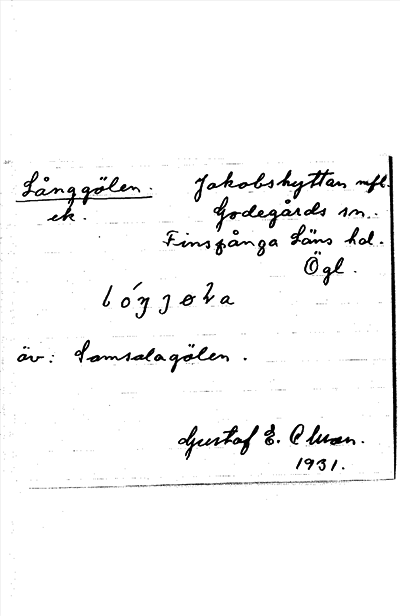 Långgölen. Jakobshyttan mfl.
ek. Godegårds sn.
Finspånga Läns hd.
Ögl.
äv: Lomsalagölen.
Gustaf E. Olsson.
1931.